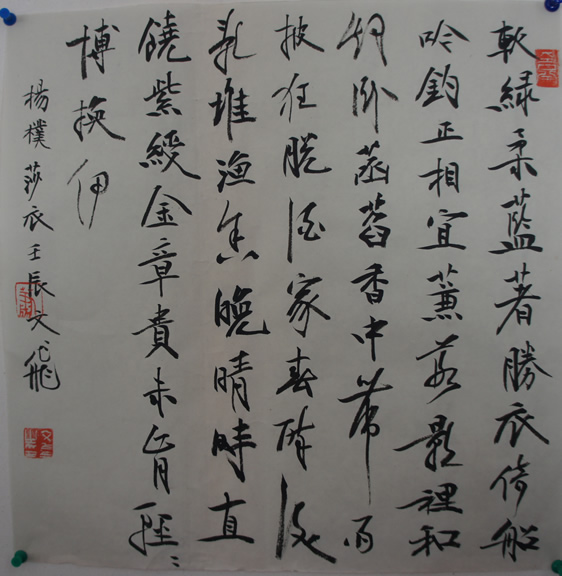 軟綠柔藍著勝衣倚船
吟釣正相宜蒹葭影裡和
烟卧菡萏香中帶雨
披狂脫酒家春醉後
亂堆漁舍晚晴時直
饒紫綬金章貴未肯輕〻
博換伊
楊樸莎衣壬辰文飛